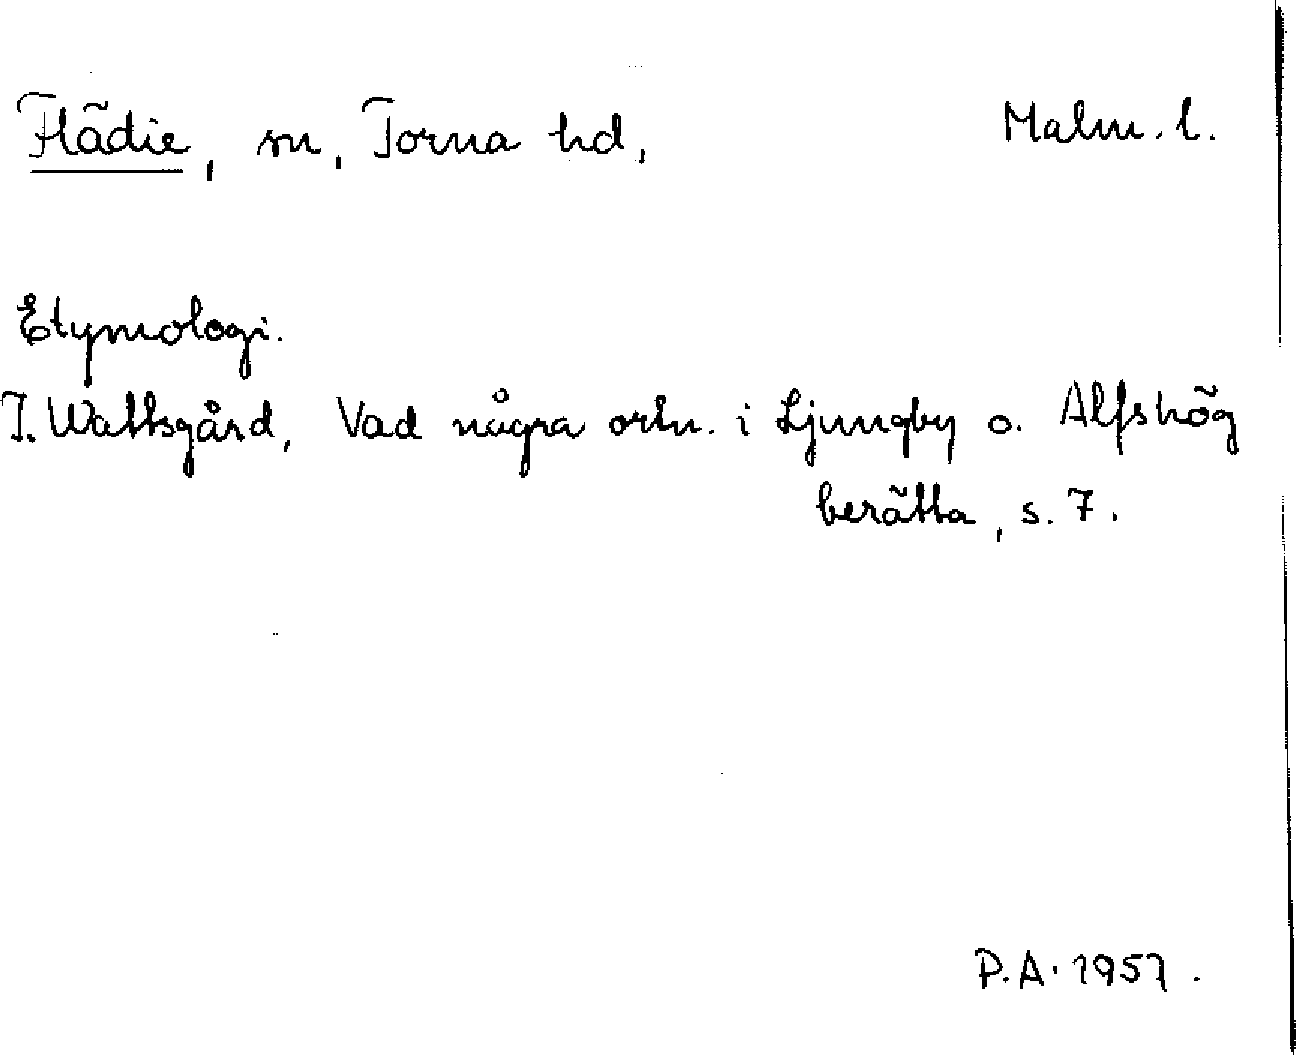 Flädie, sn, Torna hd, Malm. l.
Etymologi.
I. Wattsgård, Vad några ortn. i Ljungby o. Alfshög
berätta, s. 7.
P.A. 1957.